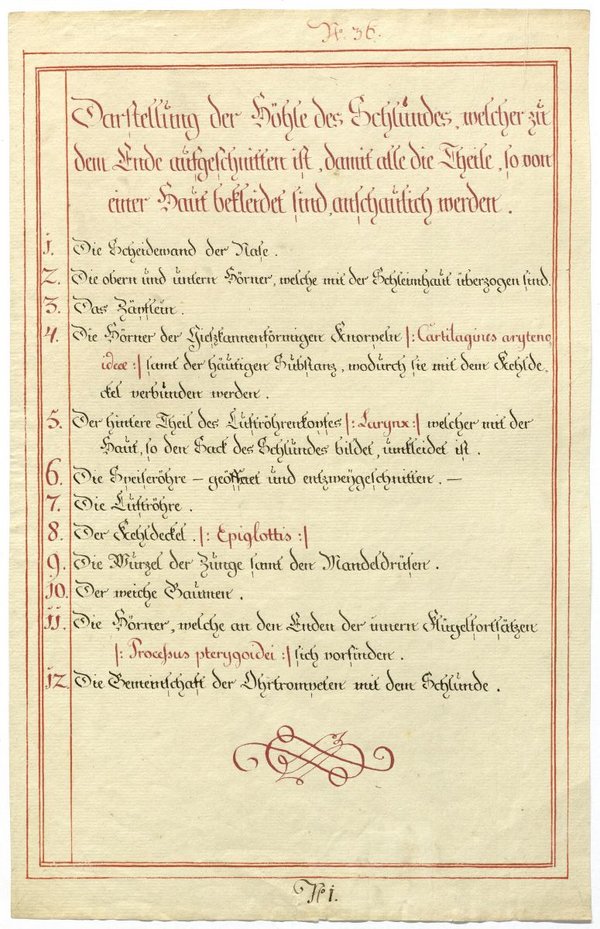 No. 36.
Darstellung der Höhle des Schlundes, welcher zu
dem Ende aufgeschnitten ist, damit alle die Theile, so von
einer Haut bekleidet sind, anschaulich werden.
1. Die Scheidewand der Nase.
2. Die obern und untern Hörner, welche mit der Schleimhaut überzogen sind.
3. Das Zäpflein.
4. Die Hörner der Gieszkannenförmigen Knorpeln |: Cartilagines aryteno
ideæ :| samt der häutigen Substanz, wodurch sie mit dem Kehlde,
ckel verbunden werden.
5. Der hintere Theil des Luftröhrenkopfes |: Larynx :| welcher mit der
Haut, so den Sack des Schlundes bildet, umkleidet ist.
6. Die Speiseröhre – geöffnet und entzweygeschnitten. —
7. Die Luftröhre.
8. Der Kehldeckel. |: Epiglottis :|
9. Die Wurzel der Zunge samt den Mandeldrüsen.
10. Der weiche Gaumen.
11. Die Hörner, welche an den Enden der innern Flügelfortsätzen
|: Processus pterygoidei :| sich vorfinden.
12. Die Gemeinschaft der Ohrtrompeten mit dem Schlunde.
No 1.